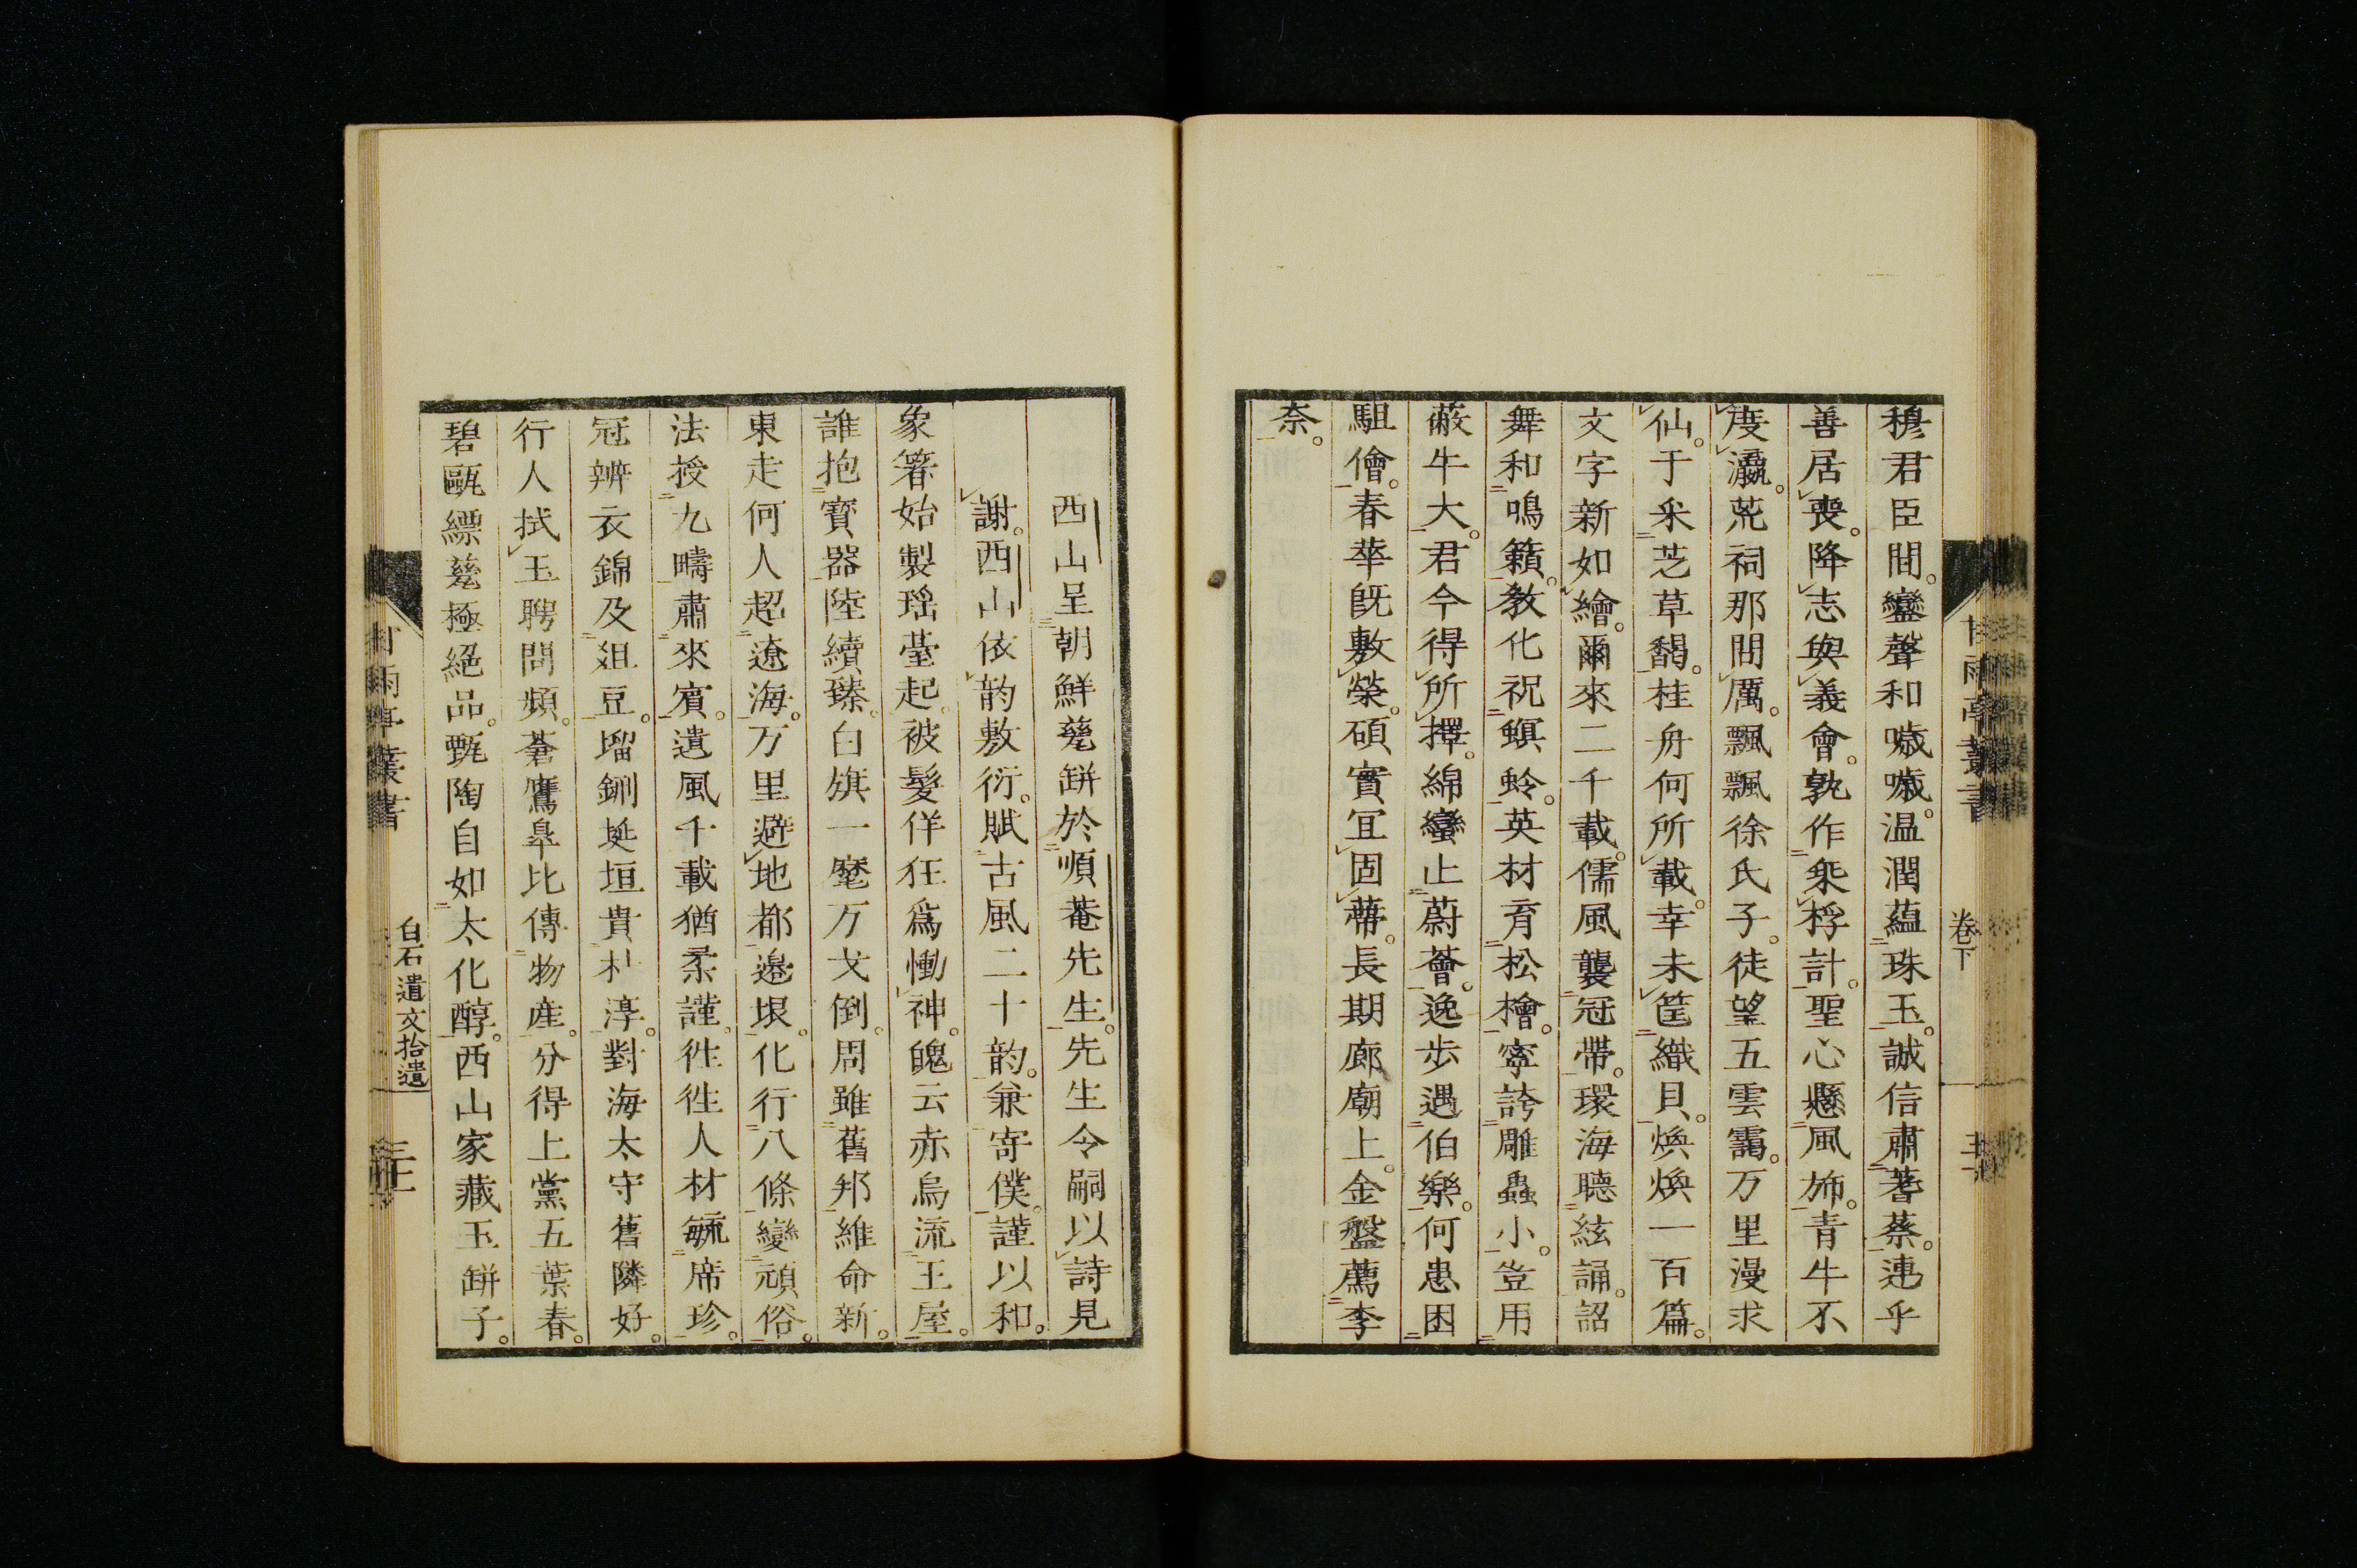 穆君臣間。鑾聲和噦噦。温潤蘊珠玉。誠信肅蓍蔡。連乎
善居喪。降志與義會。孰作椉桴計。聖心懸風斾。青牛不
度瀛。荒祠那問厲。飄飄徐氏子。徒望五雲靄。万里漫求
仙。于采芝草馤。桂舟何所載。幸未筐織貝。煥煥一百篇。
文字新如繪。爾來二千載。儒風襲冠帶。環海聽絃誦。詔
舞和鳴籟。敎化祝螟蛉。英材育松檜。寧誇雕蟲小。豈用
蔽牛大。君今得所擇。綿蠻止蔚薈。逸步遇伯樂。何患困
駔儈。春華旣敷榮。碩實宜固蔕。長期廊廟上。金盤薦李
柰。
西山呈朝鮮甆缾於順菴先生。先生令嗣以詩見
謝。西山依韵敷衍。賦古風二十韵。兼寄僕。謹以和。
象箸始製瑶臺起。被髮佯狂爲慟神。餽云赤烏流王屋。
誰抱寶器陸續臻。白旗一麾万戈倒。周雖舊邦維命新。
東走何人超遼海。万里避地都邊垠。化行八條變頑俗。
法授九疇肅來賓。遺風千載猶柔謹。徃徃人材毓席珍。
冠辨衣錦及俎豆。塯鉶埏垣貴朴淳。對海太守舊隣好。
行人拭玉聘問頻。蒼鷹皐比傳物産。分得上黨五葉春。
碧甌縹甆極絕品。甄陶自如太化醇。西山家藏玉缾子。
甘雨亭叢書
卷下
甘雨亭叢書
白石遺文拾遺